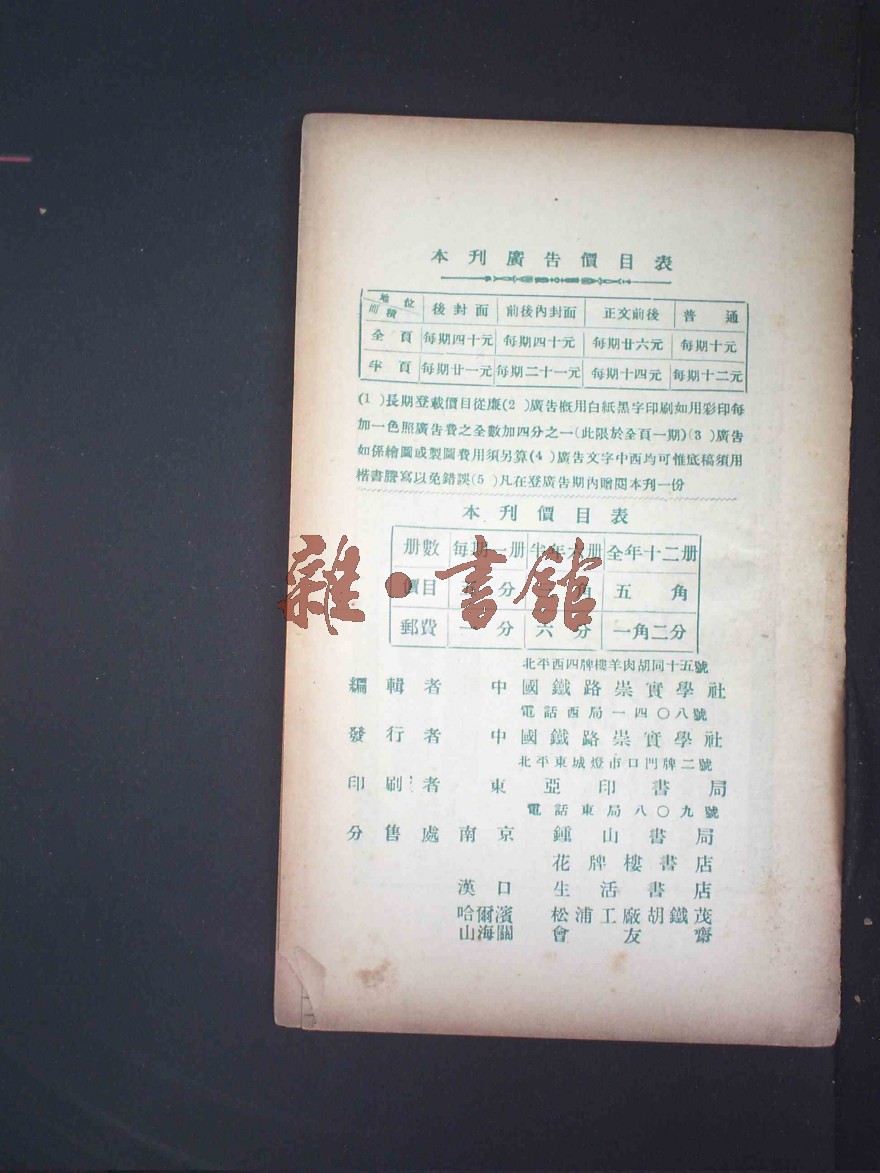 本刊廣告價目表
地位 面積 後封面 前後內封面 正文前後 普通
全頁 每期四十元 每期四十元 每期廿六元 每期十元
半頁 每期廿一元 每期二十一元 每期十四元 每期十二元
(1)長期登載價目從廉(2)廣告概用白紙黑字印刷如用彩印每
加一色照廣告費之全數加四分之一(此限於全頁一期)(3)廣告
如係繪圖或製圖費用須另算(4)廣告文字中西均可惟底稿須用
楷書謄寫以免錯誤(5)凡在登廣告期內贈閱本刊一份
本刊價目表
册數 每期一册 半年六册 全年十二册
價目 分 角 五角
郵費 一分 六分 一角二分
雜·書館
北平西四牌樓羊肉胡同十五號
編輯者 中國鐵路崇實學社
電話西局一四〇八號
發行者 中國鐵路崇實學社
北平東城燈市口門牌二號
印刷者 東亞印書局
電話東局八〇九號
分售處 南京 鍾山書局
花牌樓書店
漢口 生活書店
哈爾濱 松浦工廠胡鐵茂
山海關 會友齋